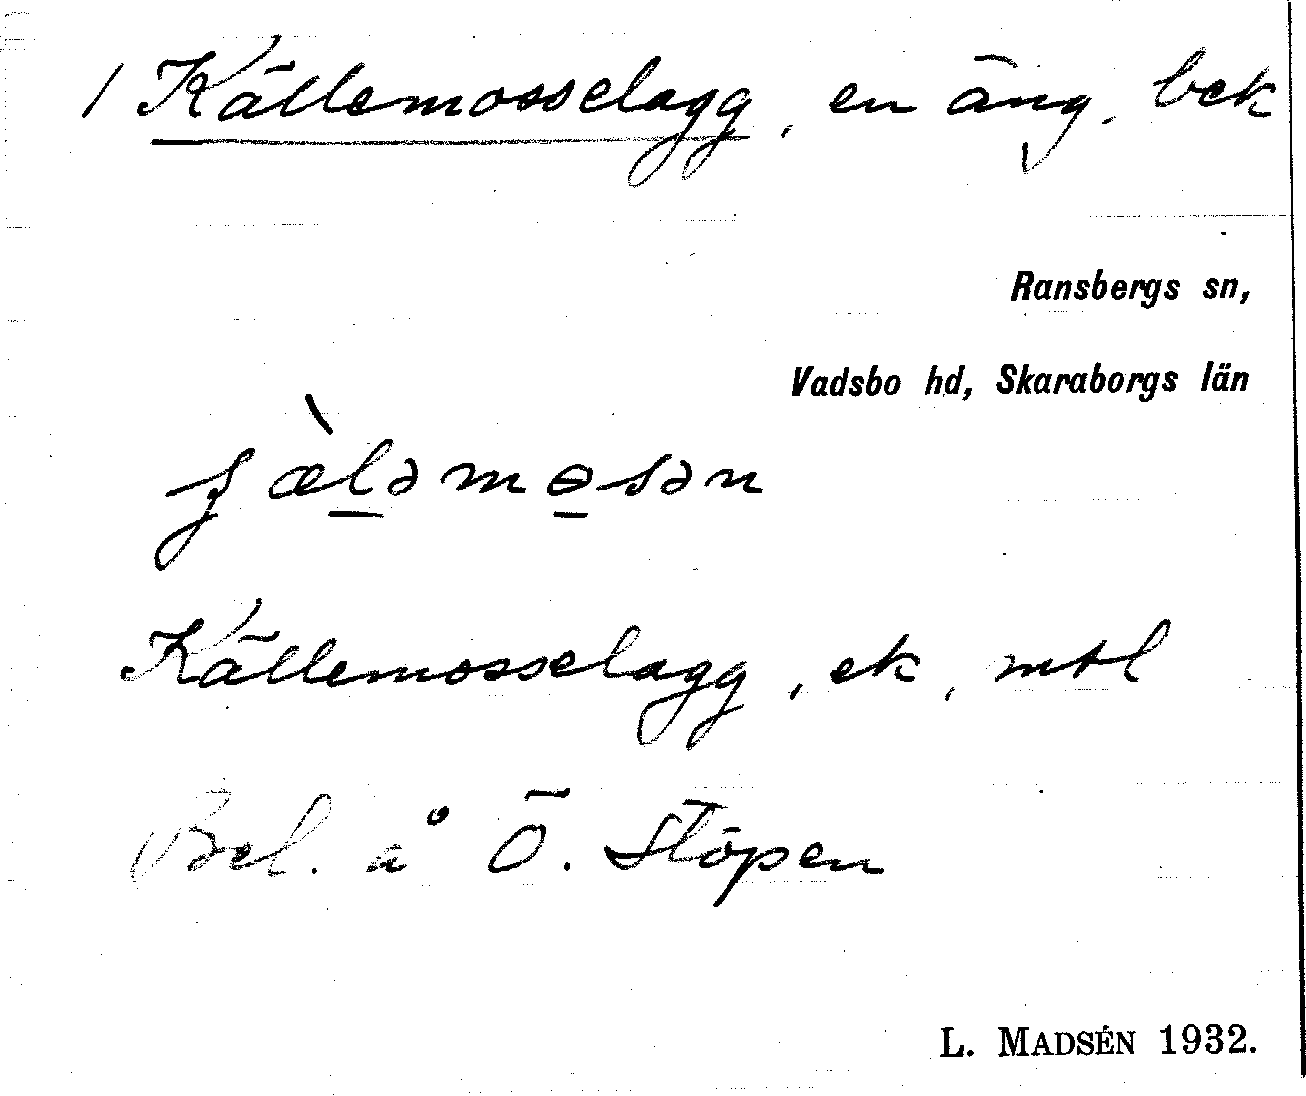 1 Källemosselagg, en äng, bek
Ransbergs sn,
Vadsbo hd, Skaraborgs län
ʃæ̀lləmɵsən
Källemosselagg, ek, mtl
Bel. å Ö. Stöpen
L. MADSÉN 1932.